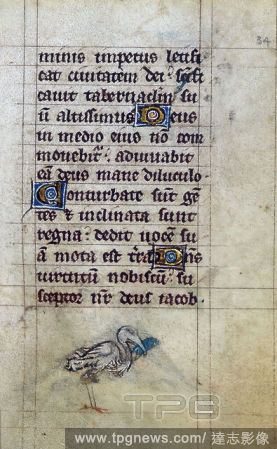 34
minis impetus letifi
cat ciuitatem dei. scifi
cauit tabernaclm su
ū altissimus Deus
in medio eius nō com
mouebit᷑. adiuuabit
eā deus mane diluculo
Conturbate sūt gē
tes ⁊ inclinata sunt
regna. dedit uocē su
ā mota est t̄ra Dn̄s
uirtutū nobiscū. su
sceptor nr̄ deus iacob.
TPG
www.tpgnews.com/達志影像